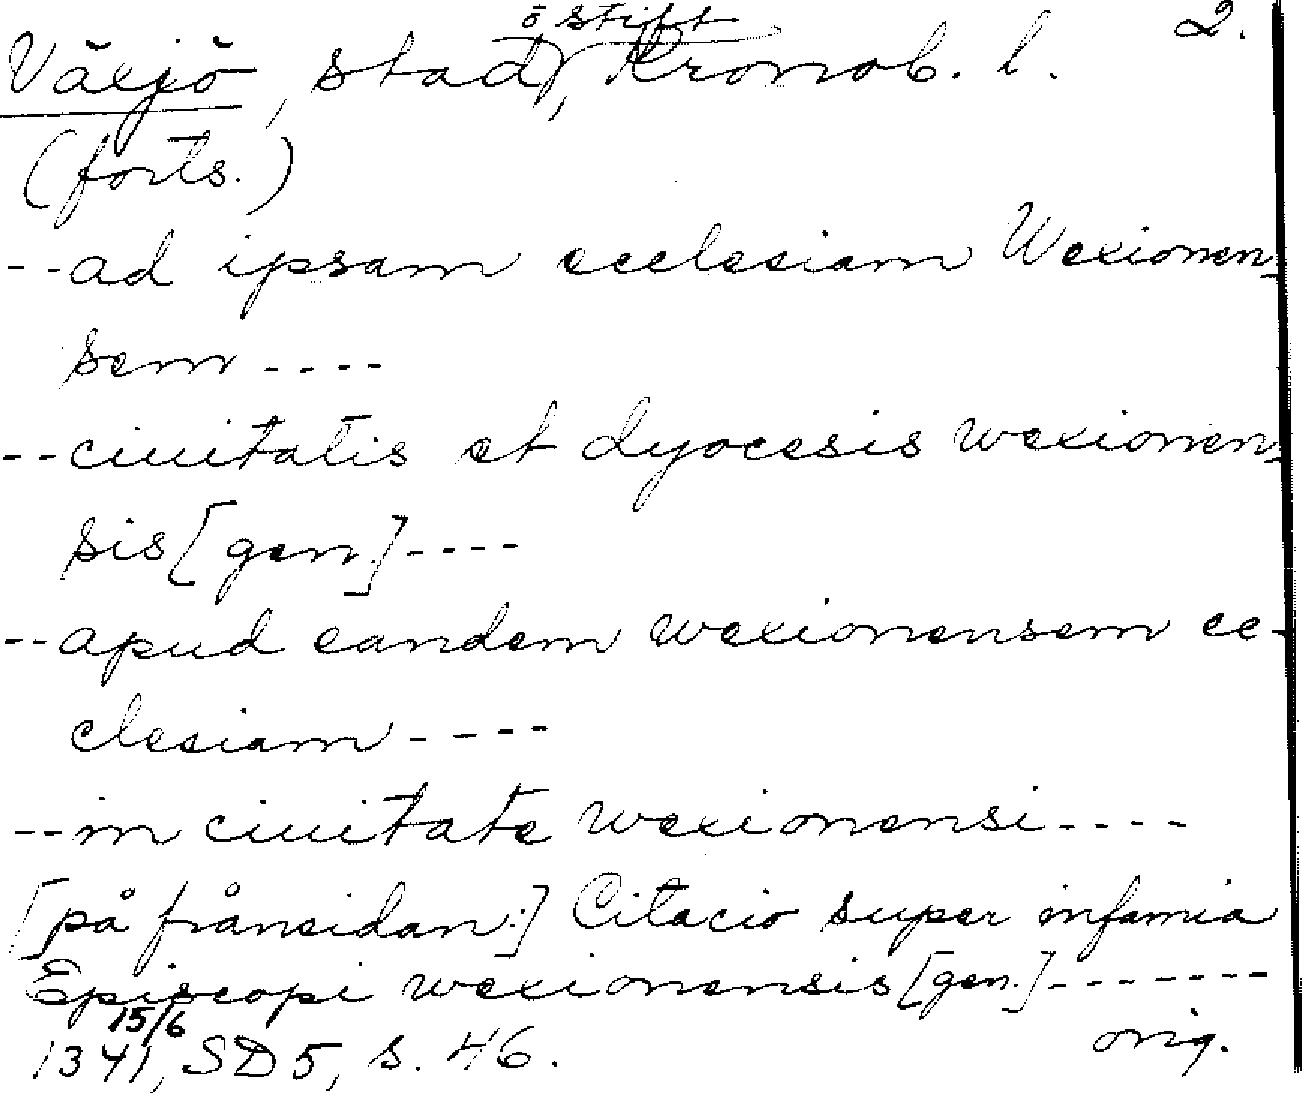 ö stift 2.
Växjö, stad, Kronob. l.
(forts.)
--ad ipsam ecclesiam Wexionen-
sem ----
--ciuitatis et dyocesis wexionen-
sis [gen.] ----
--apud eandem wexionensem ec-
clesiam ----
--in ciuitate wexionensi ----
[på frånsidan:] Citacio super infamia
Episcopi wexionensis [gen.] -------
15/6 orig.
1341, SD 5, s. 46.